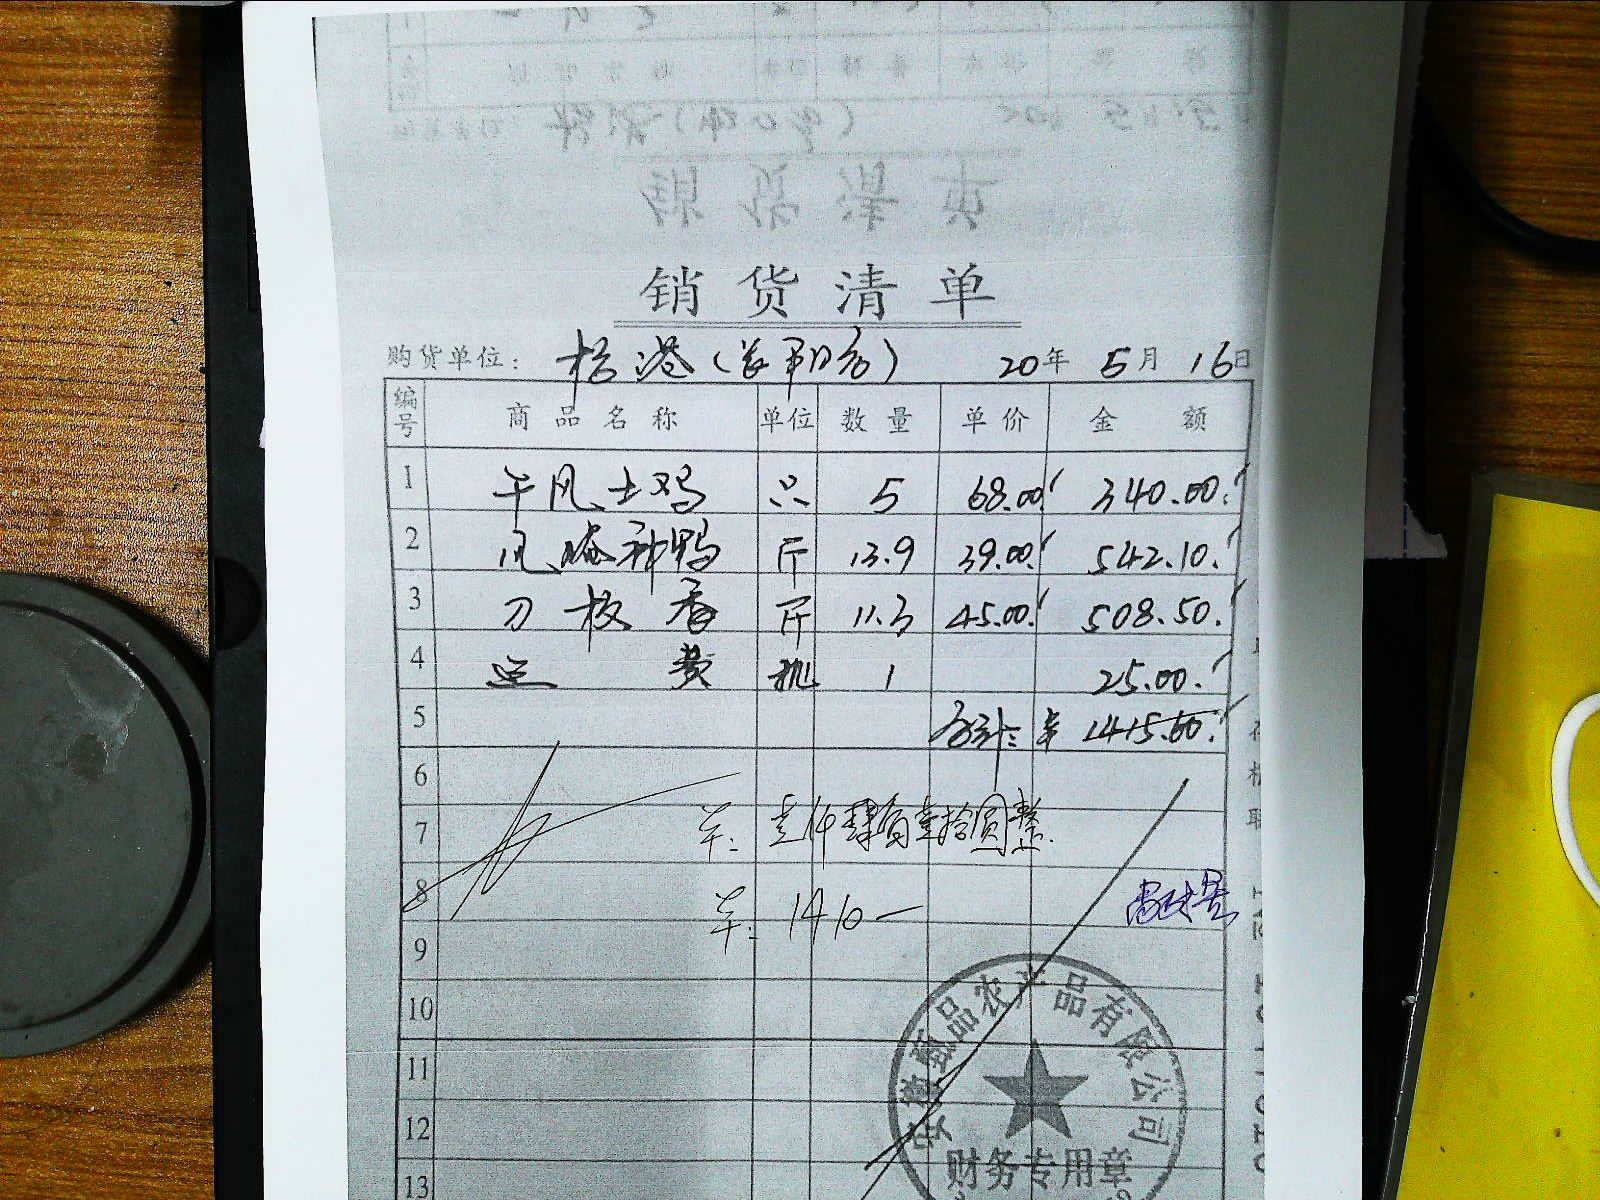 销货清单
购货单位: 梧港( ) 20年 5月 16日
编号 商品名称 单位 数量 单价 金额
1 干风土鸡 只 5 68.00 340.00
2 风腌种鸭 斤 13.9 39.00 542.10
3 刀板香 斤 11.3 45.00 508.50
4 运费 批 1 25.00
5 合计: ¥ 1415.60
6
7 羊: 壹仟肆百壹拾圆整
8 羊: 1410—
9
10
11
12
13
品农产品有限公司
财务专用章